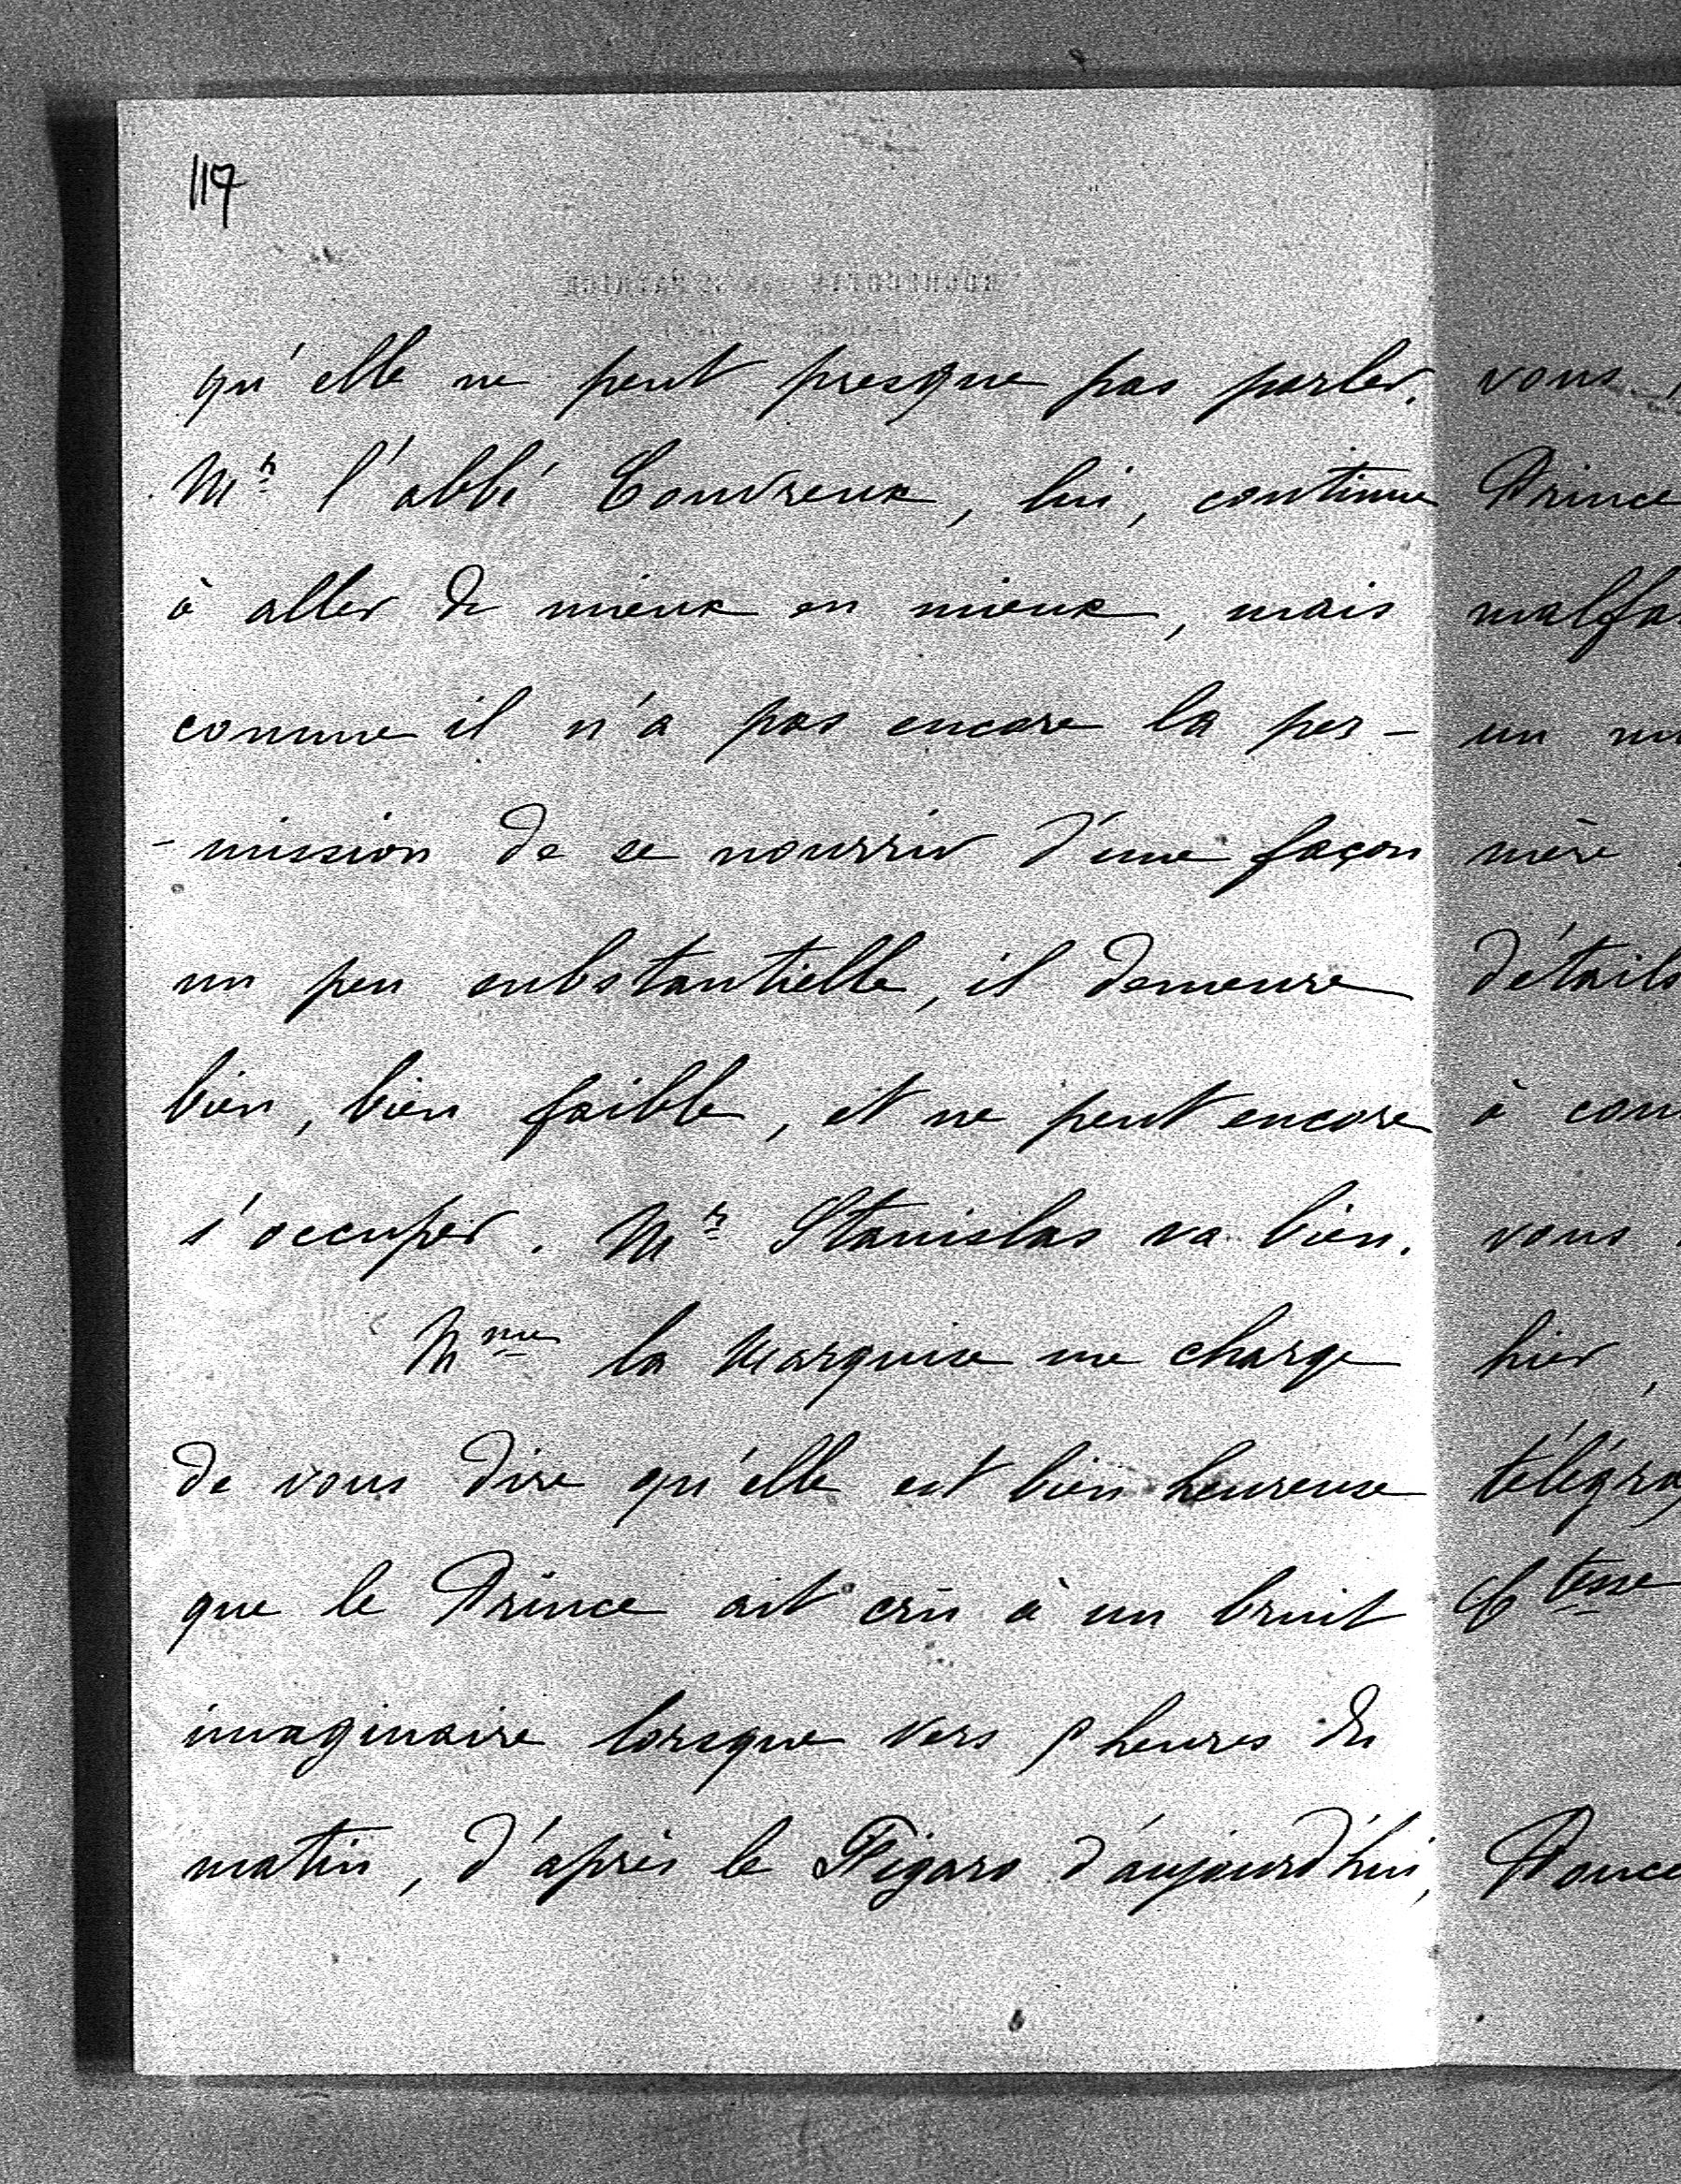 117
qu'elle ne peut presque pas parler.
Mr l'abbé Couvreux, lui, continue
à aller de mieux en mieux, mais
comme il n'a pas encore la per-
-mission de se nourrir d'une façon
un peu substantielle, il demeure
bien, bien faible, et ne peut encore
s'occuper. Mr Stanislas va bien.
Mme la Marquise me charge
de vous dire qu'elle est bien heureuse
que le Prince ait crû à un bruit
imaginaire lorsque vers heures du
matin, d'après le Figaro d'aujourd'hui,
vous
Prince
malfa
un
mère
détails
à
vous
hier,
télégra
Ctesse